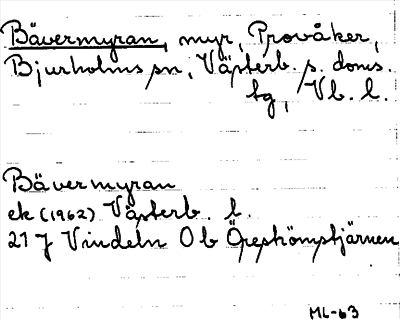 Bävermyran, myr, Provåker,
Bjurholms sn, Västerb. s. doms.
tg, Vb. l.
Bävermyran
ek (1962) Västerb. l.
21 J Vindeln 0 b Öreströmstjärnen
ML-63